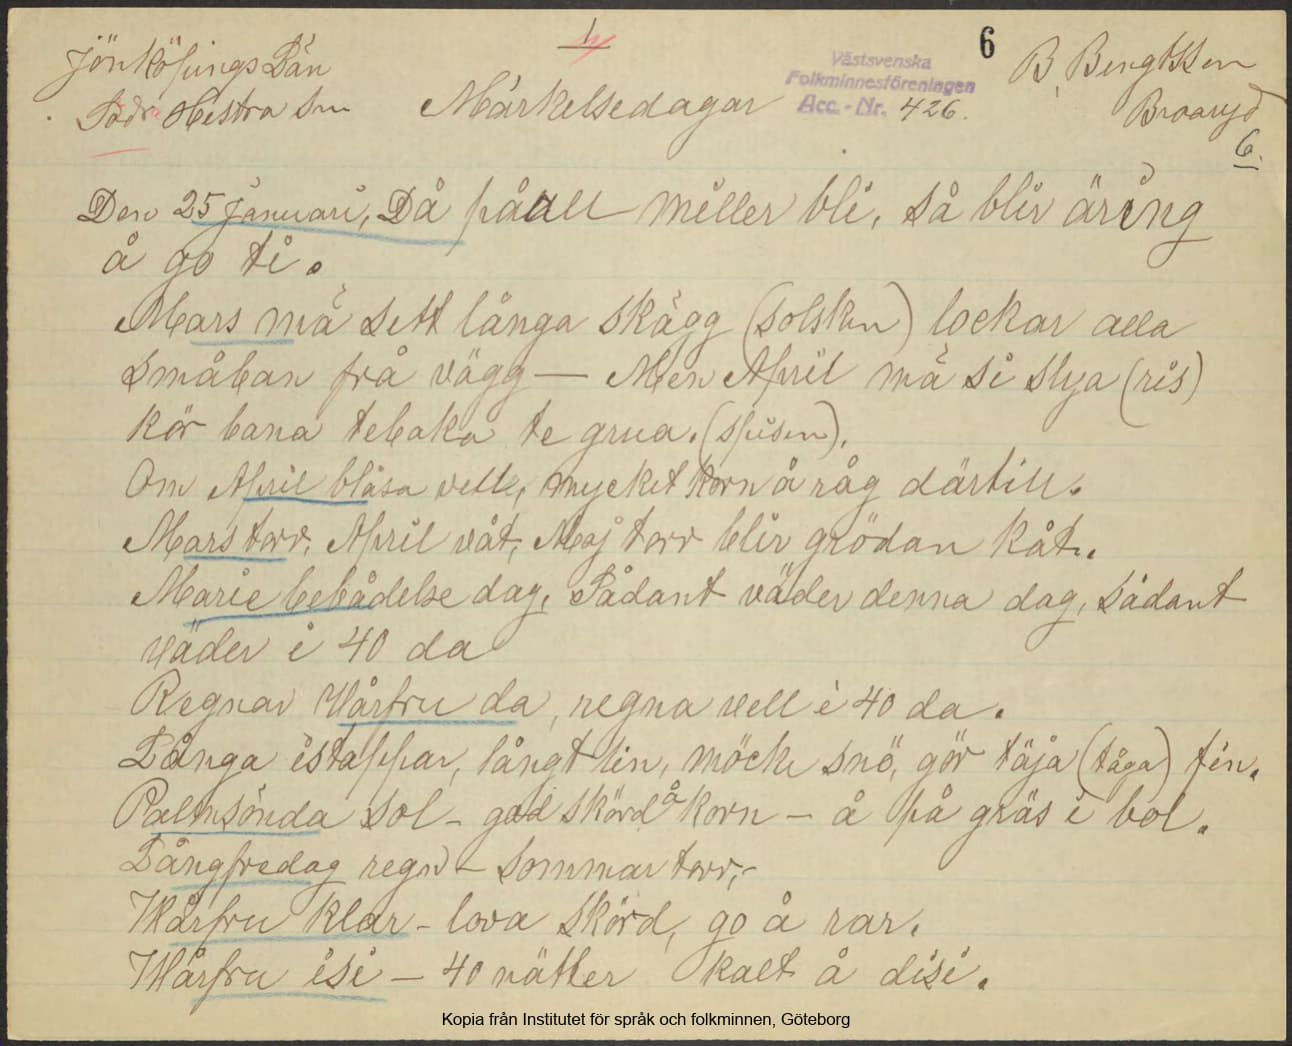 1
6
Jönköpings Län
Västsvenska
Folkminnesföreningen
Acc.-Nr. 426.
B. Bengtsson
Södra Hestra Sn
Märkelsedagar
Broaryd
6.
Den 25 Januari, Då påall möller bli, så blir äring
å go ti.
Mars må sett långa skägg (solsken) lockar alla
småban frå vägg — Men April må si slya (ris)
kör bana tebaka te grua. (spisen).
Om April blåsa vell, mycket korn å råg därtill.
Mars torr, April våt, Maj torr blir grödan kåt.
Marie bebådelse dag, Sådant väder denna dag, sådant
väder i 40 da
Regnar Wårfru da, regna vell i 40 da.
Långa istappar, långt lin, möcke snö, gör täja (tåga) fin.
Palmsönda sol - god skörd å korn - å på gräs i bol.
Långfredag regn - sommar torr,-
Wårfru klar - lova skörd, go å rar.
Wårfru isi - 40 nätter kalt å disi.
Kopia från Institutet för språk och folkminnen, Göteborg